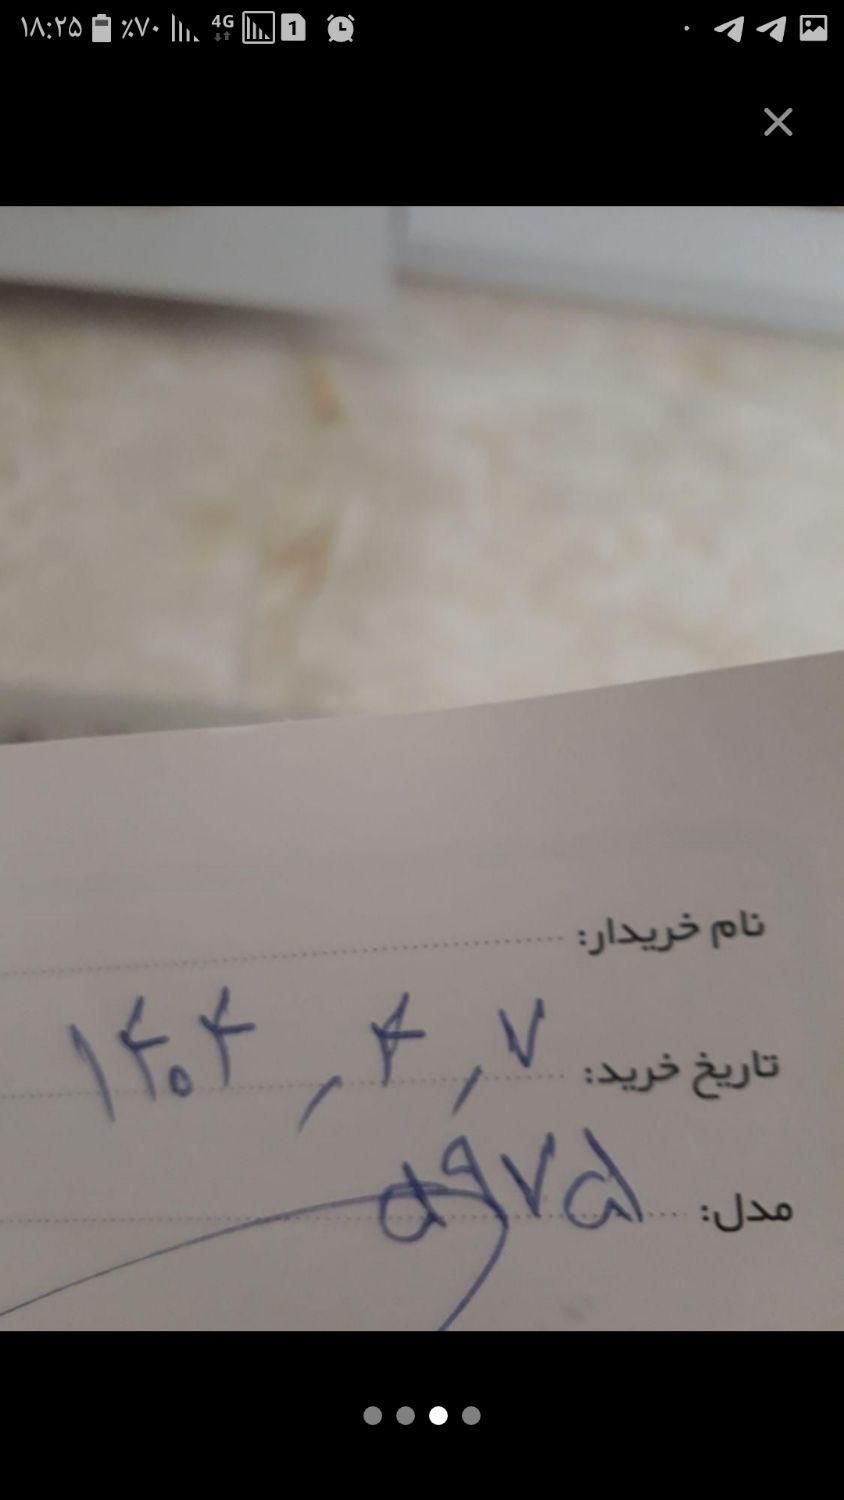 ۱۸:۲۵ ٪۷۰ 4G 1
نام خریدار:
تاریخ خرید: ۱۴۰۴,۴,۷
مدل: ۵۹۷۵